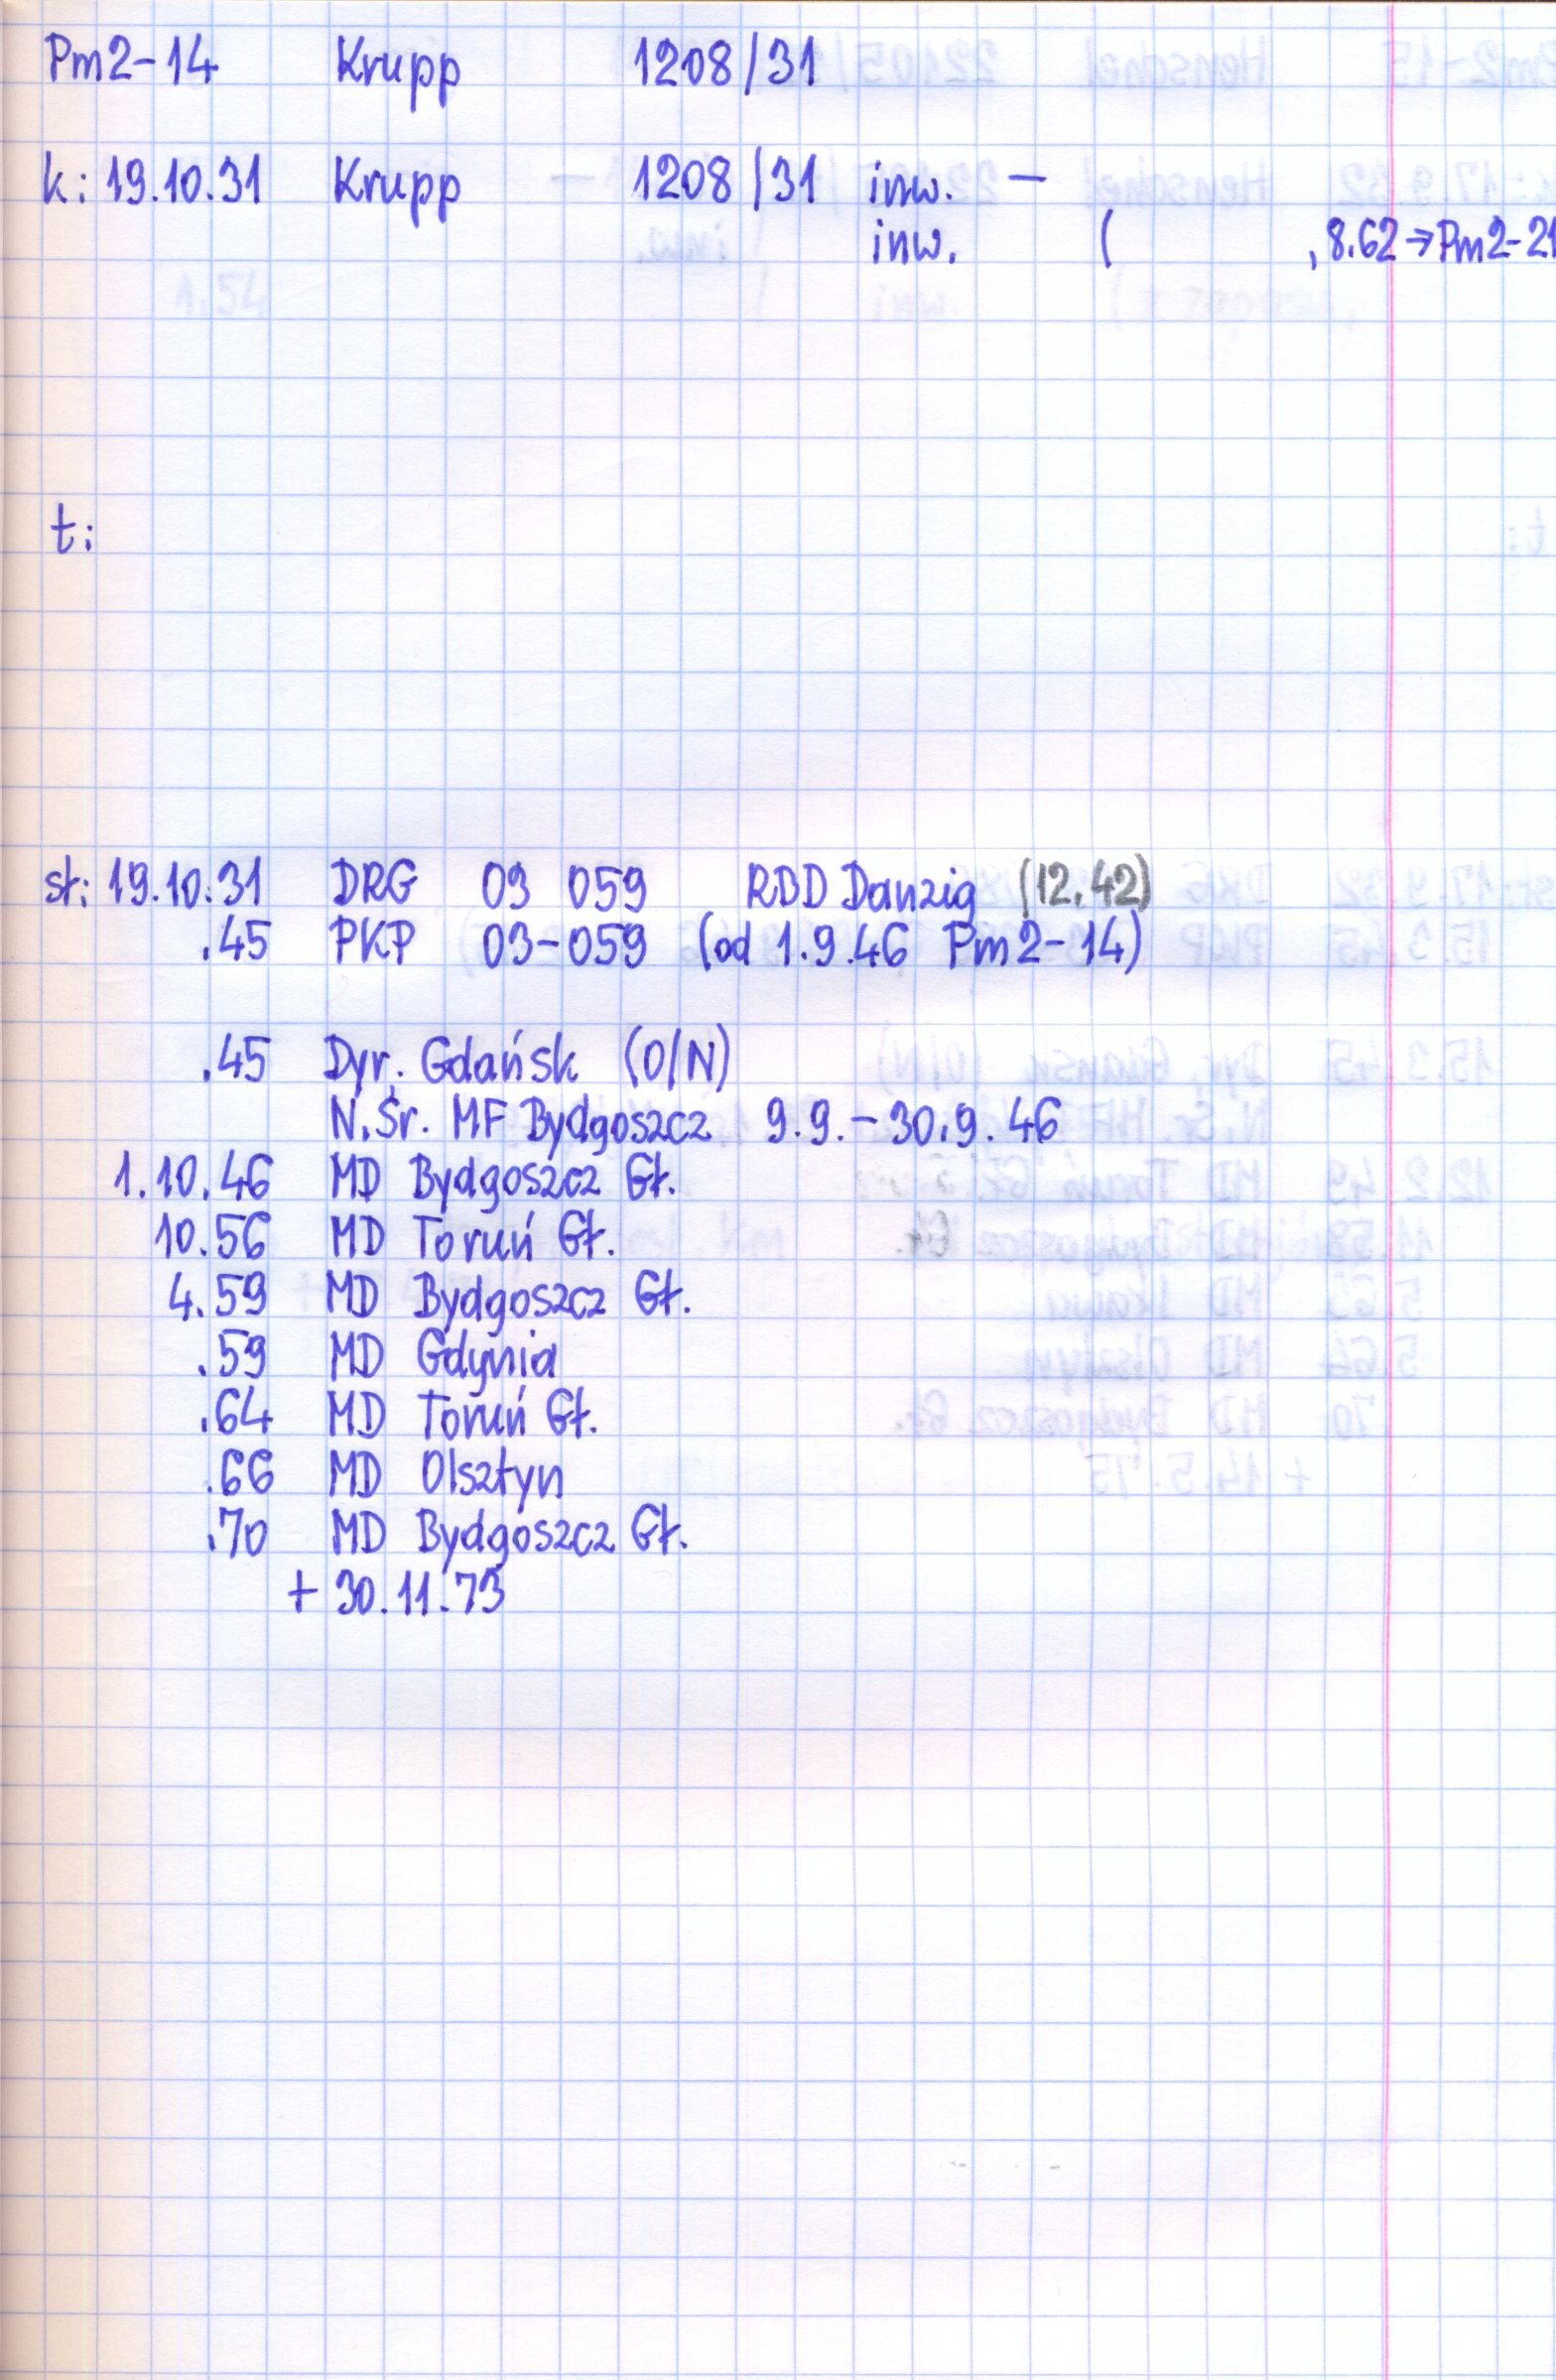 Pm2-14 Krupp 1208/31
k: 19.10.31 Krupp — 1208/31 inw. —
inw. ( , 8.62 → Pm2-21
t:
st: 19.10.31 DRG 03 059 RBD Danzig (12.42)
.45 PKP 03-059 (od 1.9.46 Pm2-14)
.45 Dyr. Gdańsk (O/N)
N.Śr. MF Bydgoszcz 9.9.-30.9.46
1.10.46 MD Bydgoszcz Gł.
10.56 MD Toruń Gł.
4.59 MD Bydgoszcz Gł.
.59 MD Gdynia
.64 MD Toruń Gł.
.66 MD Olsztyn
.70 MD Bydgoszcz Gł.
+ 30.11.73